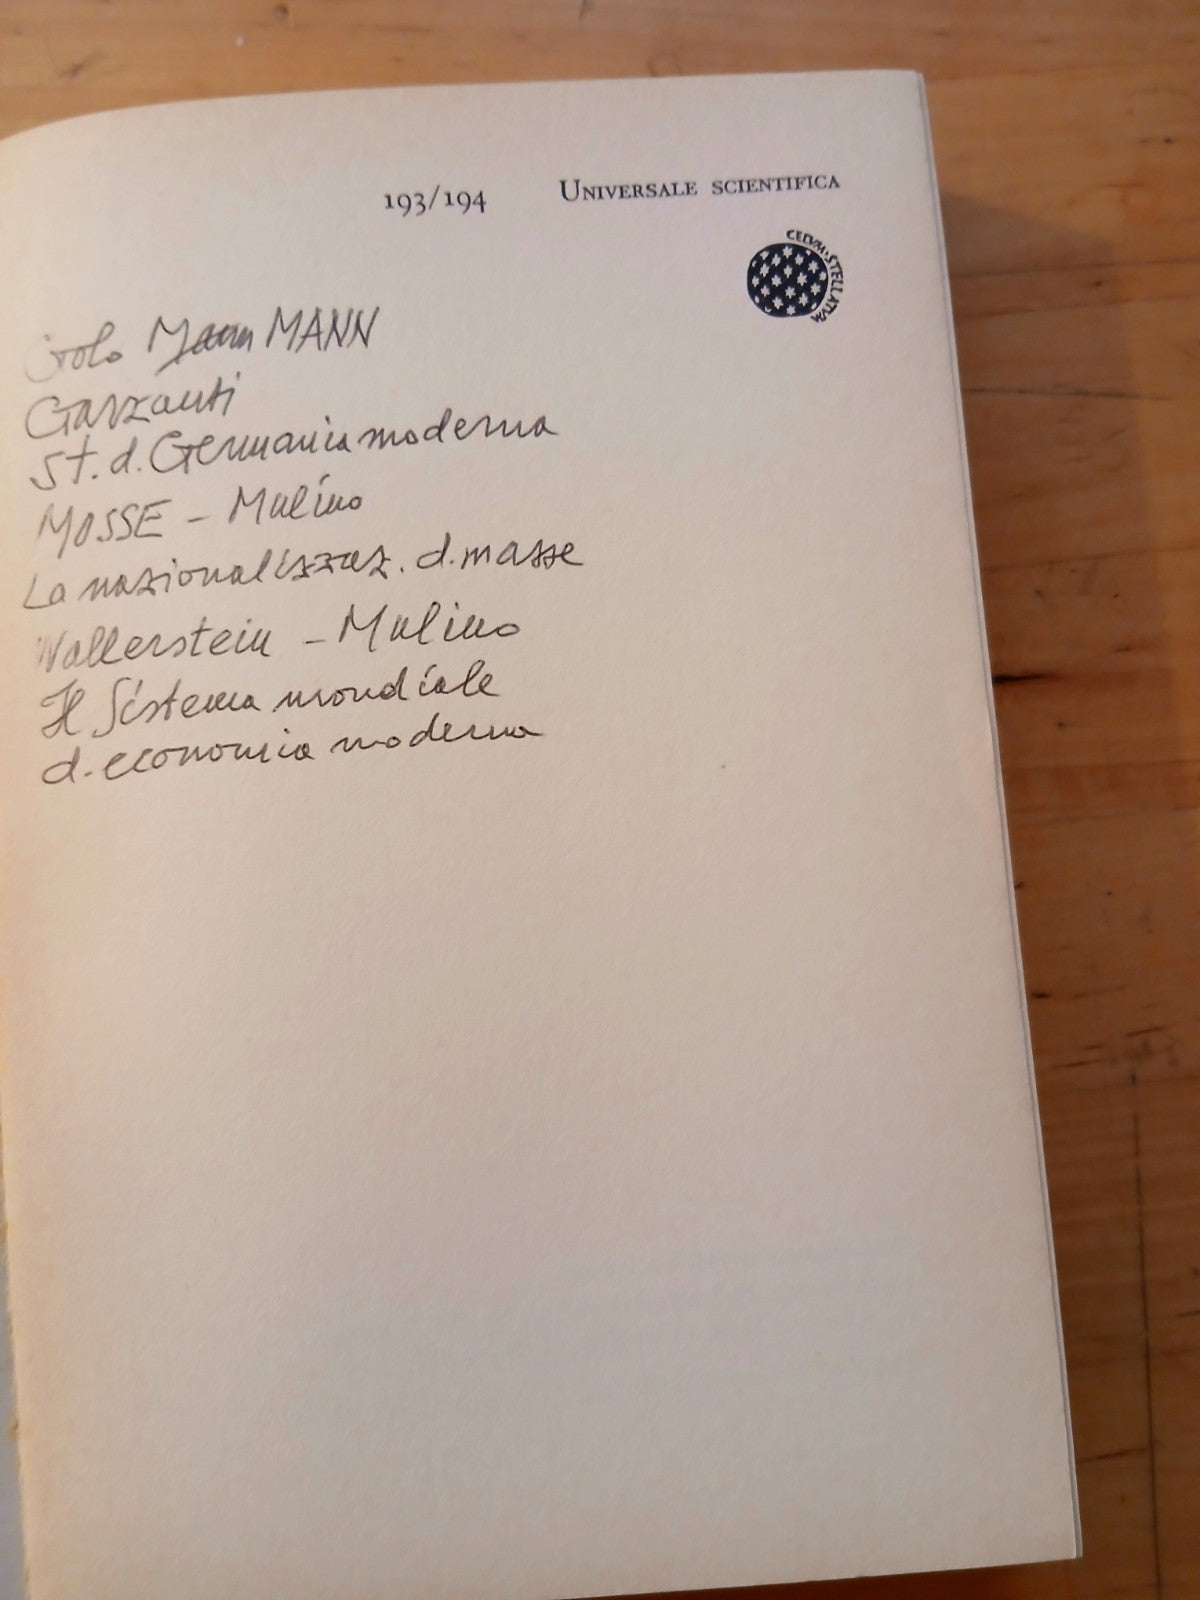 193/194 UNIVERSALE SCIENTIFICA
CELVM·STELLATVM
Golo Mann MANN
Garzanti
St. d. Germania moderna
MOSSE - Mulino
La nazionalizzaz. d. masse
Wallerstein - Mulino
Il Sistema mondiale
d. economia moderna